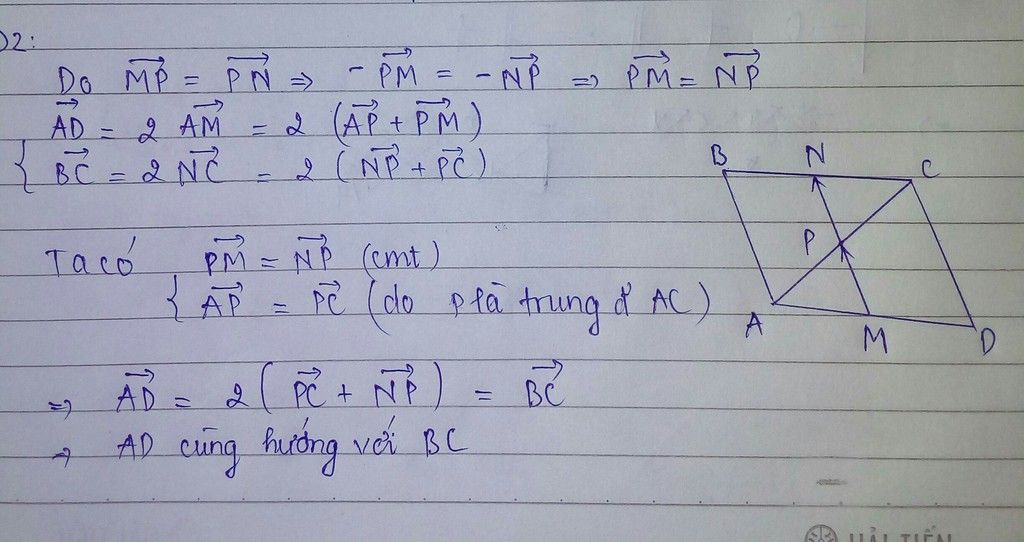 02:
Do \overrightarrow{MP} = \overrightarrow{PN} ⇒ -\overrightarrow{PM} = -\overrightarrow{NP} ⇒ \overrightarrow{PM} = \overrightarrow{NP}
\overrightarrow{AD} = 2 \overrightarrow{AM} = 2 (\overrightarrow{AP} + \overrightarrow{PM})
{ \overrightarrow{BC} = 2 \overrightarrow{NC} = 2 (\overrightarrow{NP} + \overrightarrow{PC})
Ta có \overrightarrow{PM} = \overrightarrow{NP} (cmt)
{ \overrightarrow{AP} = \overrightarrow{PC} (do P là trung đ AC)
⇒ \overrightarrow{AD} = 2 (\overrightarrow{PC} + \overrightarrow{NP}) = \overrightarrow{BC}
→ AD cùng hướng với BC
B N C
P
A M D
HẢI TIẾN